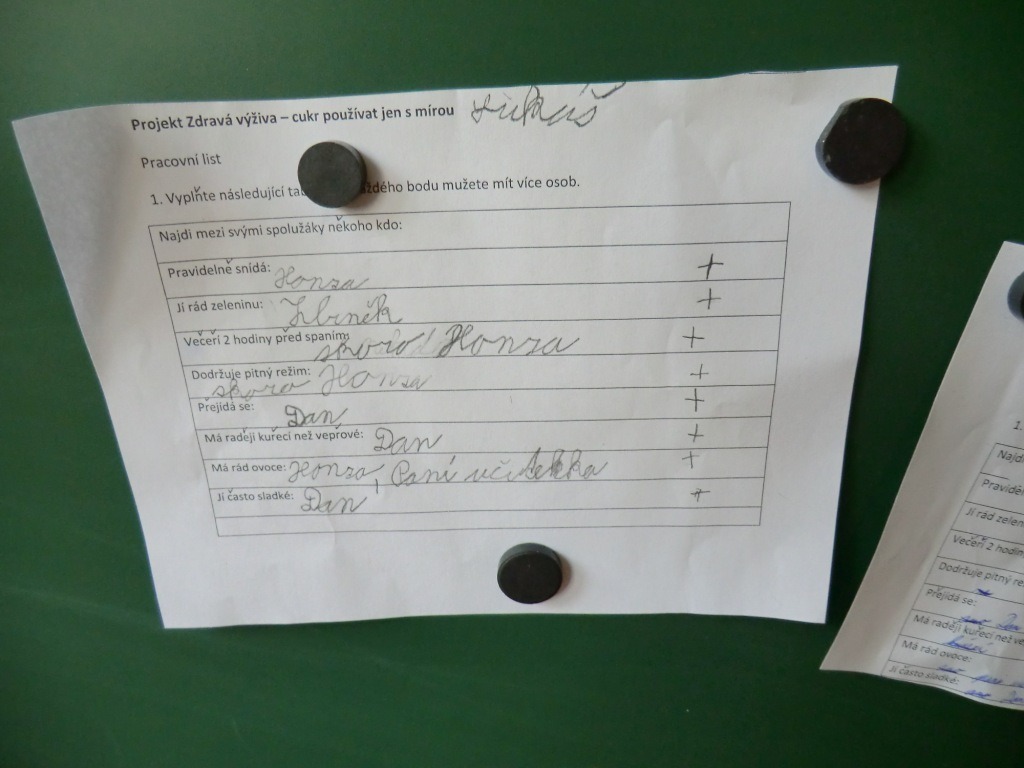 Projekt Zdravá výživa – cukr používat jen s mírou Lukáš
Pracovní list
1. Vyplňte následující každého bodu mužete mít více osob.
Najdi mezi svými spolužáky někoho kdo:
Pravidelně snídá: Honza +
Jí rád zeleninu: Zbiněk +
Večeří 2 hodiny před spaním: skoro Honza +
Dodržuje pitný režim: skoro Honza +
Přejídá se: Dan +
Má raději kuřecí než vepřové: Dan +
Má rád ovoce: Honza, Paní učitelka +
Jí často sladké: Dan +
1.
Najdi
Pravidel
Jí rád zelen
Večeří 2 hodin
Dodržuje pitný re
Přejídá se:
Má raději kuřecí než ve
Má rád ovoce:
Jí často sladké: